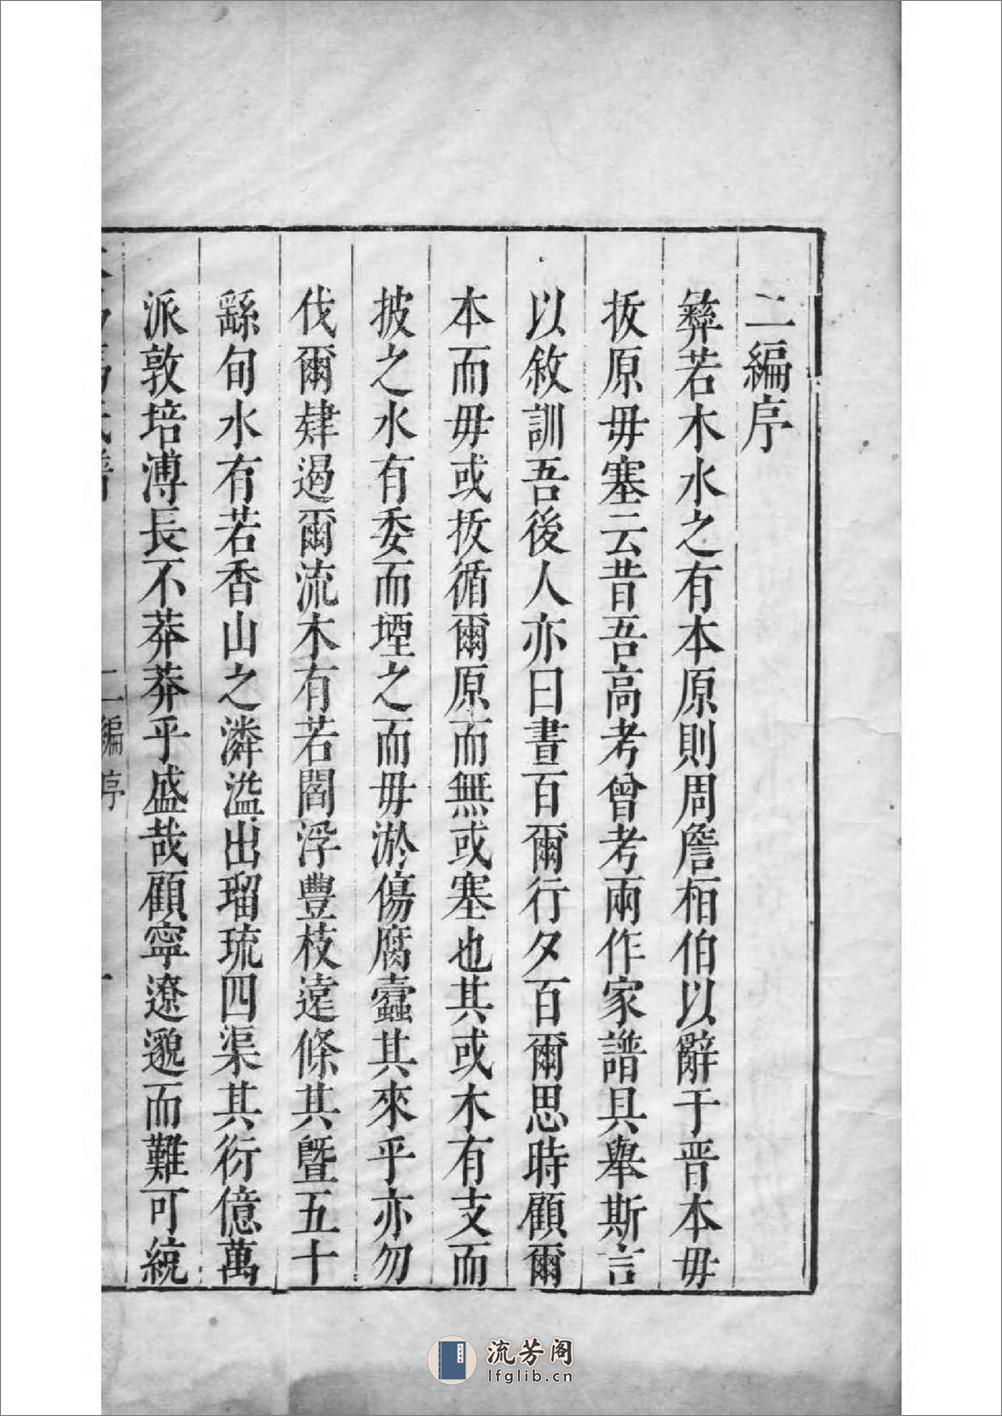 二編序
彝若木水之有本原則周詹柏伯以辭于晉本毋
拔原毋塞云昔吾高考曾考兩作家譜具舉斯言
以敘訓吾後人亦曰晝百爾行夕百爾思時顧爾
本而毋或拔循爾原而無或塞也其或木有支而
披之水有委而堙之而毋淤傷腐蠹其來乎亦勿
伐爾肄遏爾流木有若閻浮豐枝遠條其暨五十
繇旬水有若香山之潾湓出瑠琉四渠其衍億萬
派敦培溥長不莽莽乎盛哉顧寧遼邈而難可統
二編序
流芳阁
lfglib.cn